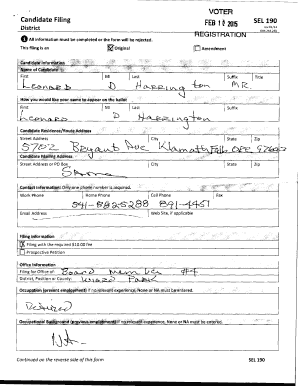 Candidate Filing
District
VOTER
FEB 12 2015
REGISTRATION
SEL 190
All information must be completed or the form will be rejected.
This filing is an Original Amendment
Candidate Information
Name of Candidate
First MI Last Suffix Title
Leonard D Harrington MR
How you would like your name to appear on the ballot
First MI Last Suffix
Leonard D Harrington
Candidate Residence/Route Address
Street Address City State Zip
5702 Bryant Ave Klamath Falls ORE 97603
Candidate Mailing Address
Street Address or PO Box City State Zip
Same
Contact Information Only one phone number is required.
Work Phone Home Phone Cell Phone Fax
541-8825288 891-4451
Email Address Web Site, if applicable
Filing Information
Filing with the required $10.00 fee
Prospective Petition
Office Information
Filing for Office of: Board Member #4
District, Position or County:
Occupation (present employment) If no relevant experience, None or NA must be entered.
Retired
Occupational Background (previous employment) If no relevant experience, None or NA must be entered.
NA
Continued on the reverse side of this form SEL 190